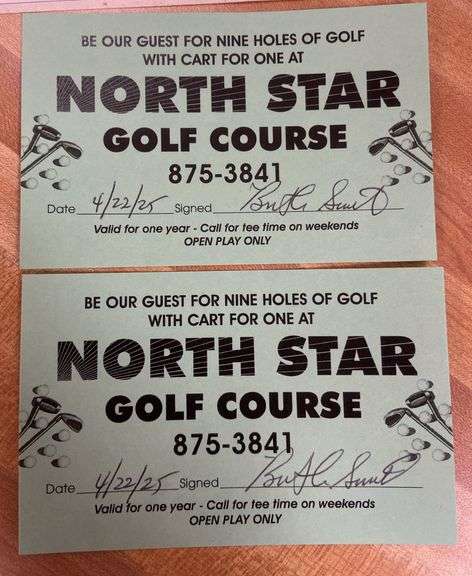 BE OUR GUEST FOR NINE HOLES OF GOLF
WITH CART FOR ONE AT
NORTH STAR
GOLF COURSE
875-3841
Date 4/22/25 Signed
Valid for one year - Call for tee time on weekends
OPEN PLAY ONLY
BE OUR GUEST FOR NINE HOLES OF GOLF
WITH CART FOR ONE AT
NORTH STAR
GOLF COURSE
875-3841
Date 4/22/25 Signed
Valid for one year - Call for tee time on weekends
OPEN PLAY ONLY